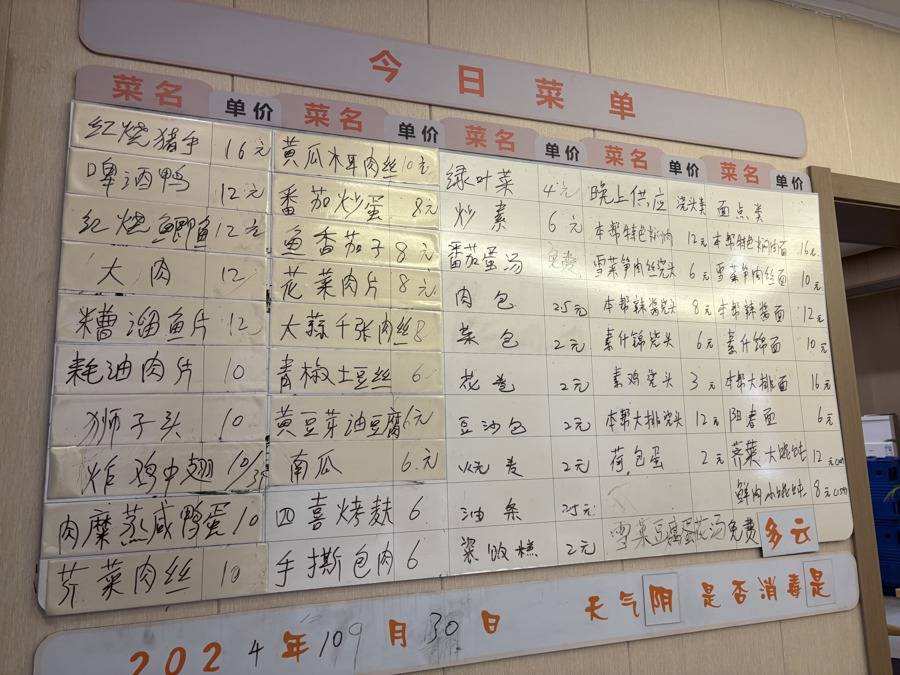 今日菜单
菜名 单价 菜名 单价 菜名 单价 菜名 单价 菜名 单价
红烧猪手 16元
啤酒鸭 12元
红烧鲫鱼 12元
大肉 12
糟溜鱼片 12
耗油肉片 10
狮子头 10
炸鸡中翅 10/3只
肉糜蒸咸鸭蛋 10
芥菜肉丝 10
黄瓜木耳肉丝 10元
番茄炒蛋 8元
鱼香茄子 8元
花菜肉片 8元
大蒜千张肉丝 8
青椒土豆丝 6
黄豆芽油豆腐 6元
南瓜 6元
四喜烤麸 6
手撕包肉 6
绿叶菜 4元
炒素 6元
番茄蛋汤 免费
肉包 2.5元
菜包 2元
花卷 2元
豆沙包 2元
2元
油条 2.5元
粢饭糕 2元
晚上供应 浇头类
本帮特色焖肉 12元
雪菜笋肉丝浇头 6元
本帮辣酱浇头 8元
素什锦浇头 6元
素鸡浇头 3元
本帮大排浇头 12元
荷包蛋 2元
面点类
本帮特色焖肉面 16元
雪菜笋肉丝面 10元
本帮辣酱面 12元
素什锦面 10元
本帮大排面 16元
阳春面 6元
荠菜大馄饨 12元
鲜肉小馄饨 8元
雪菜豆腐蛋花汤免费
多云
2024年109月30日 天气阴 是否消毒是